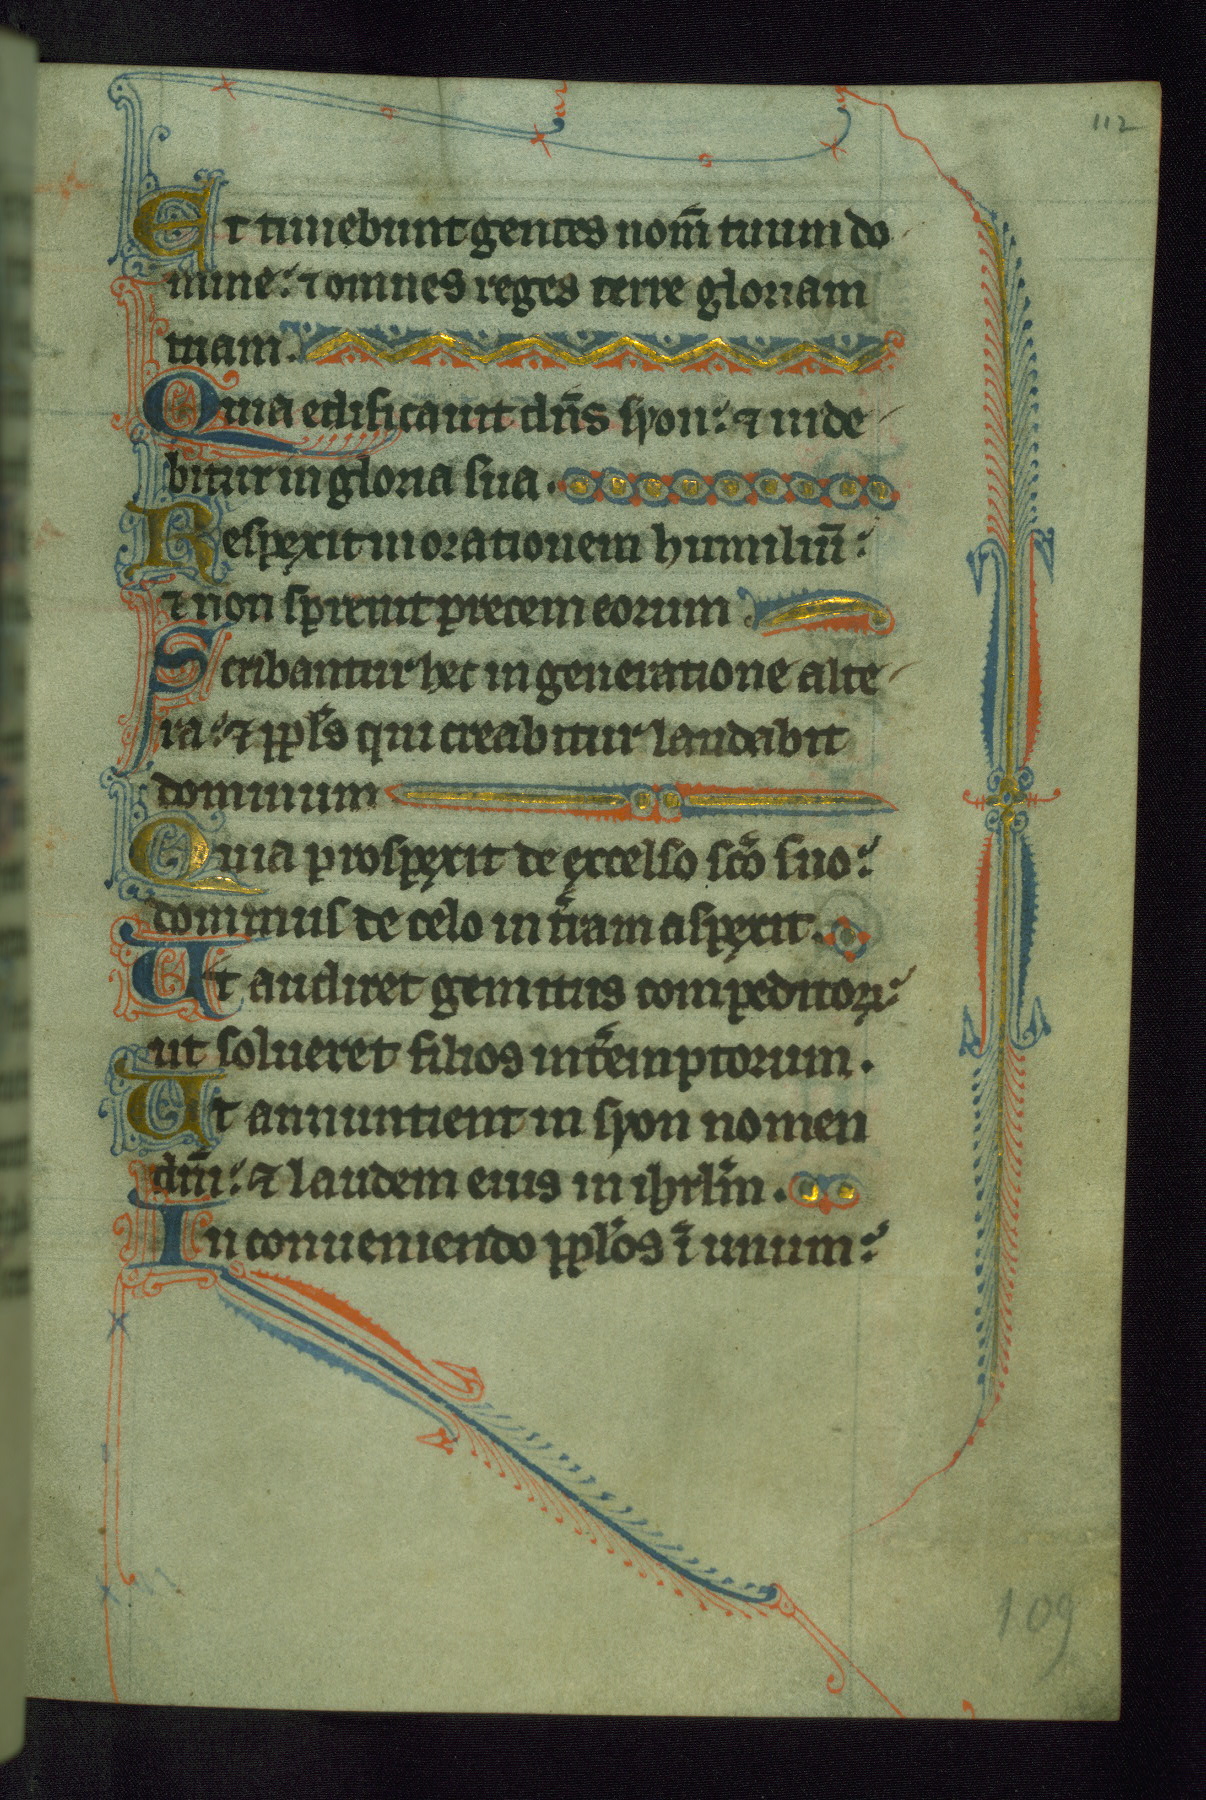 112
Et timebunt gentes nom̄ tuum do
mine: ⁊ omnes reges terre gloriam
tuam.
Quia edificauit dn̄s syon: ⁊ uide
bitur in gloria sua.
Respexit in orationem humiliū:
⁊ non spreuit precem eorum
Scribantur hec in generatione alte
ra: ⁊ ppl̄s qui creabitur laudabit
dominum
Quia prospexit de excelso sc̄o suo:
dominus de celo in t̄ram aspexit.
Ut audiret gemitus compeditoꝝ:
ut solueret filios int̄emptorum.
Ut annuntient in syon nomen
dm̄i: ⁊ laudem eius in ihrl̄m.
In conueniendo ppl̄os ī unum:
109